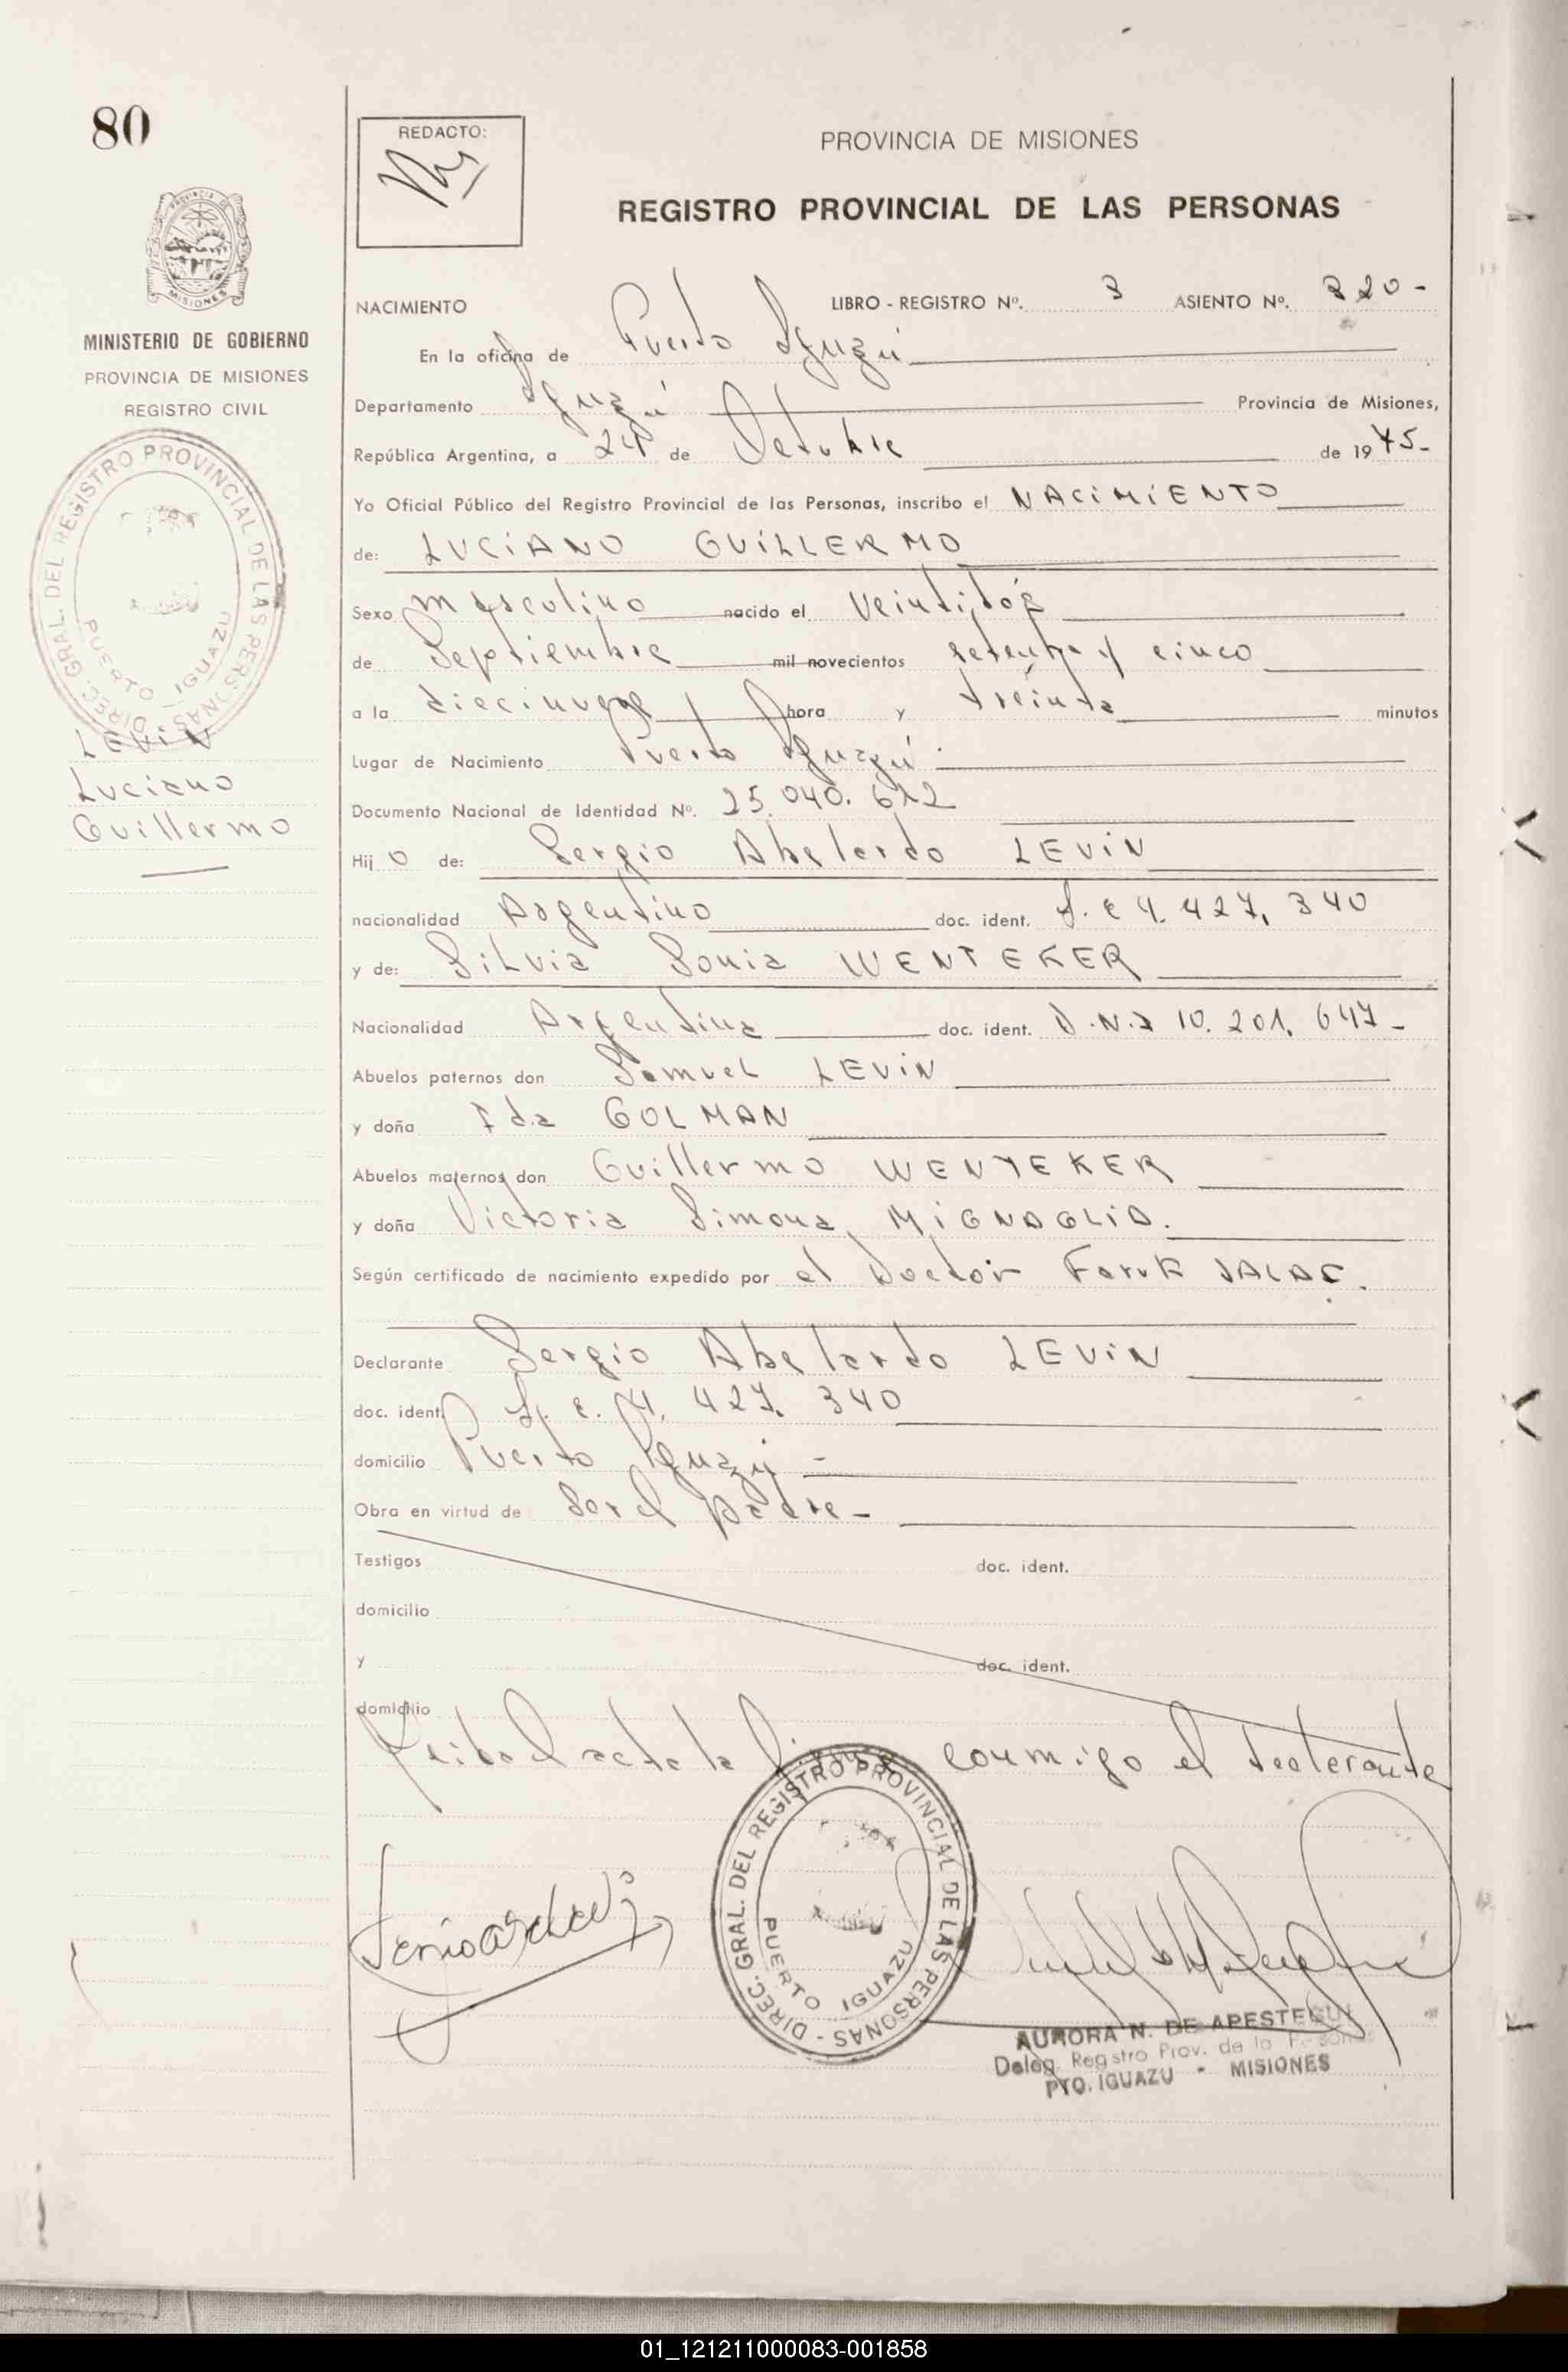 80
REDACTO:
PROVINCIA DE MISIONES
REGISTRO PROVINCIAL DE LAS PERSONAS
PROVINCIA DE
MISIONES
MINISTERIO DE GOBIERNO
PROVINCIA DE MISIONES
REGISTRO CIVIL
DIREC. GRAL. DEL REGISTRO PROVINCIAL DE LAS PERSONAS -
PUERTO IGUAZU
LEVIN
Luciano
Guillermo
NACIMIENTO LIBRO - REGISTRO Nº. 3 ASIENTO Nº. 220 -
En la oficina de Puerto Iguazú
Departamento Iguazú Provincia de Misiones,
República Argentina, a 24 de Octubre de 1975-
Yo Oficial Público del Registro Provincial de las Personas, inscribo el NACIMIENTO
de: LUCIANO GUILLERMO
Sexo masculino nacido el veintidós
de Septiembre mil novecientos setenta y cinco
a la diecinueve hora y treinta minutos
Lugar de Nacimiento Puerto Iguazú.
Documento Nacional de Identidad Nº. 25.040.612
Hij o de: Sergio Abelardo LEVIN
nacionalidad Argentino doc. ident. L. E 4. 427. 340
y de: Silvia Sonia WENTEKER
Nacionalidad Argentina doc. ident. D.N.I 10. 201. 647-
Abuelos paternos don Samuel LEVIN
y doña Ida GOLMAN
Abuelos maternos don Guillermo WENTEKER
y doña Victoria Simona MIGNAGLIA.
Según certificado de nacimiento expedido por el Doctor Faruk JALAF.
Declarante Sergio Abelardo LEVIN
doc. ident. L. E. 4. 427. 340
domicilio Puerto Iguazú -
Obra en virtud de Ser el padre -
Testigos doc. ident.
domicilio
y doc. ident.
domicilio
el acta la firma conmigo el declarante
DIREC. GRAL. DEL REGISTRO PROVINCIAL DE LAS PERSONAS -
PUERTO IGUAZU
AURORA N. DE APESTEGUI
Deleg. Registro Prov. de la Personas
PTO. IGUAZU - MISIONES
01_121211000083-001858